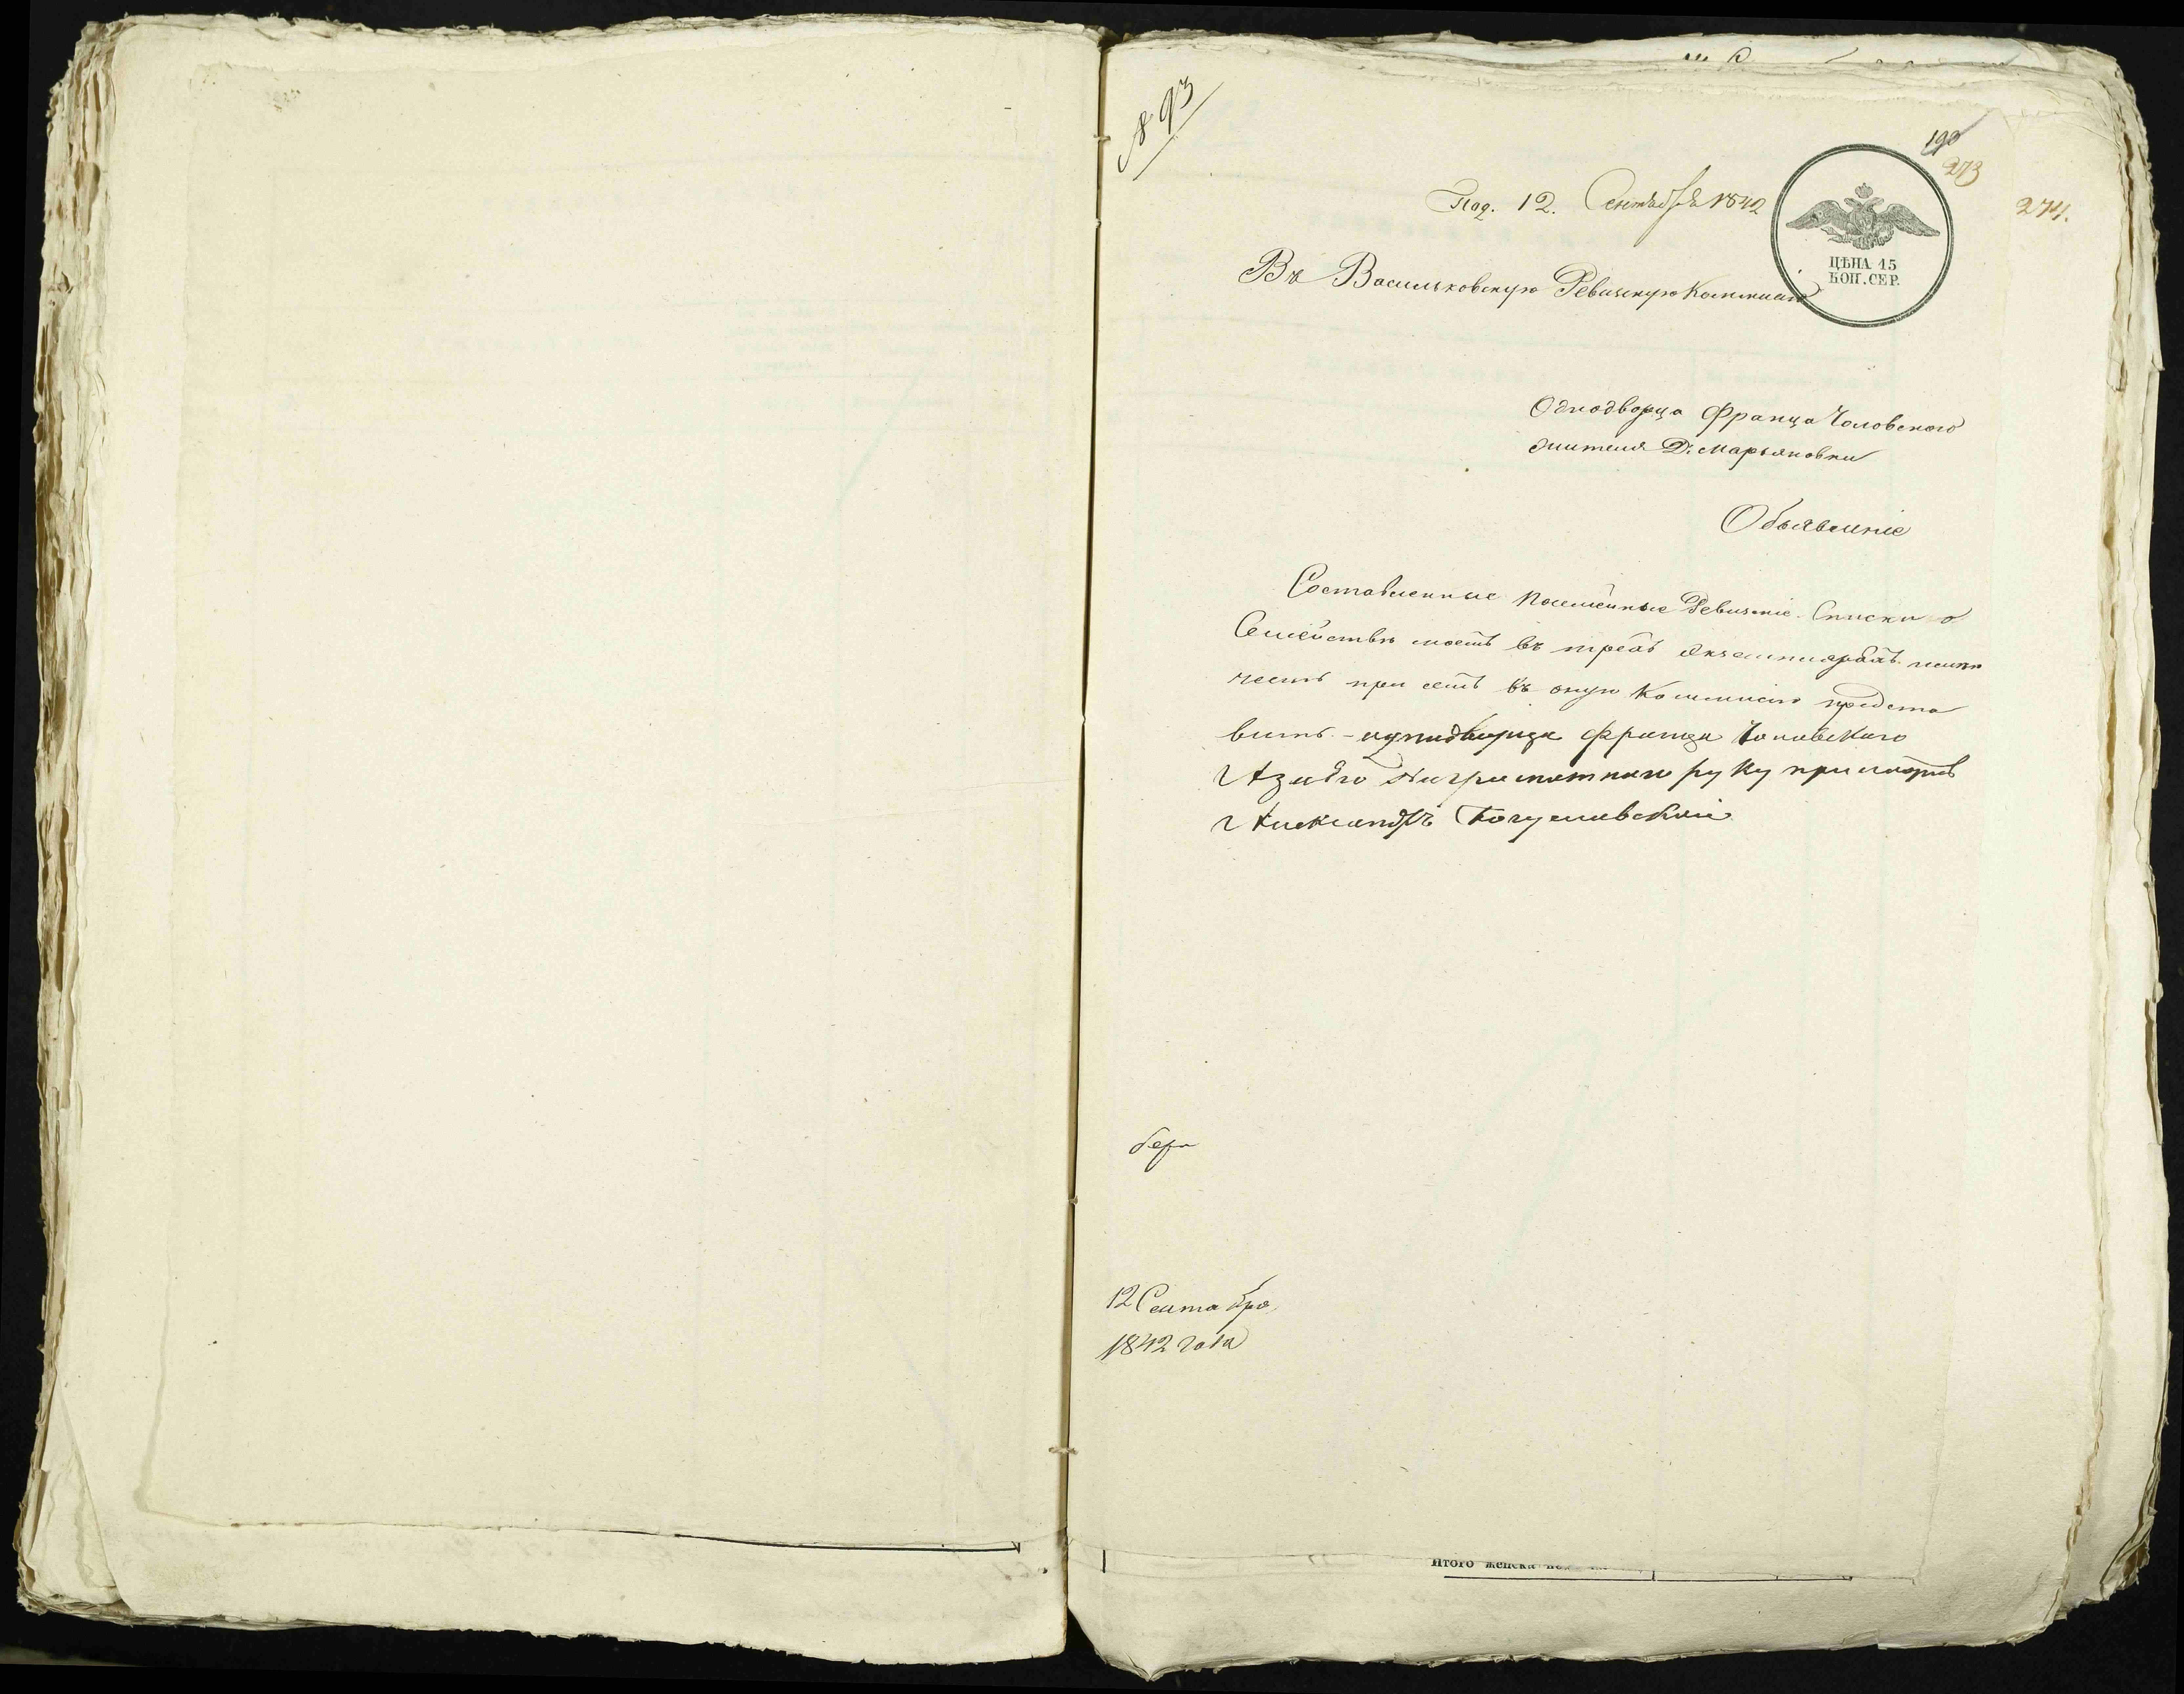 № 93
190
273
274.
Под. 12. Сентября 1842
ЦѢНА 15
КОП. СЕР.
Въ Васильковскую Ревизкую Коммисію
Однодворца Франца Чоловского
жителя Д. Марьяновки
Объявленіе
Составленные Посемейные Ревизкіе Списки о
Семействѣ моемъ въ трехъ экземплярахъ имѣю
честь при семъ въ оную Коммисію предста
вить. - однодворца Франца Чоловского
А за его неграмотного руку приложилъ
Александръ Богуславскій
12 Сентабра
1842 года
Итого женска